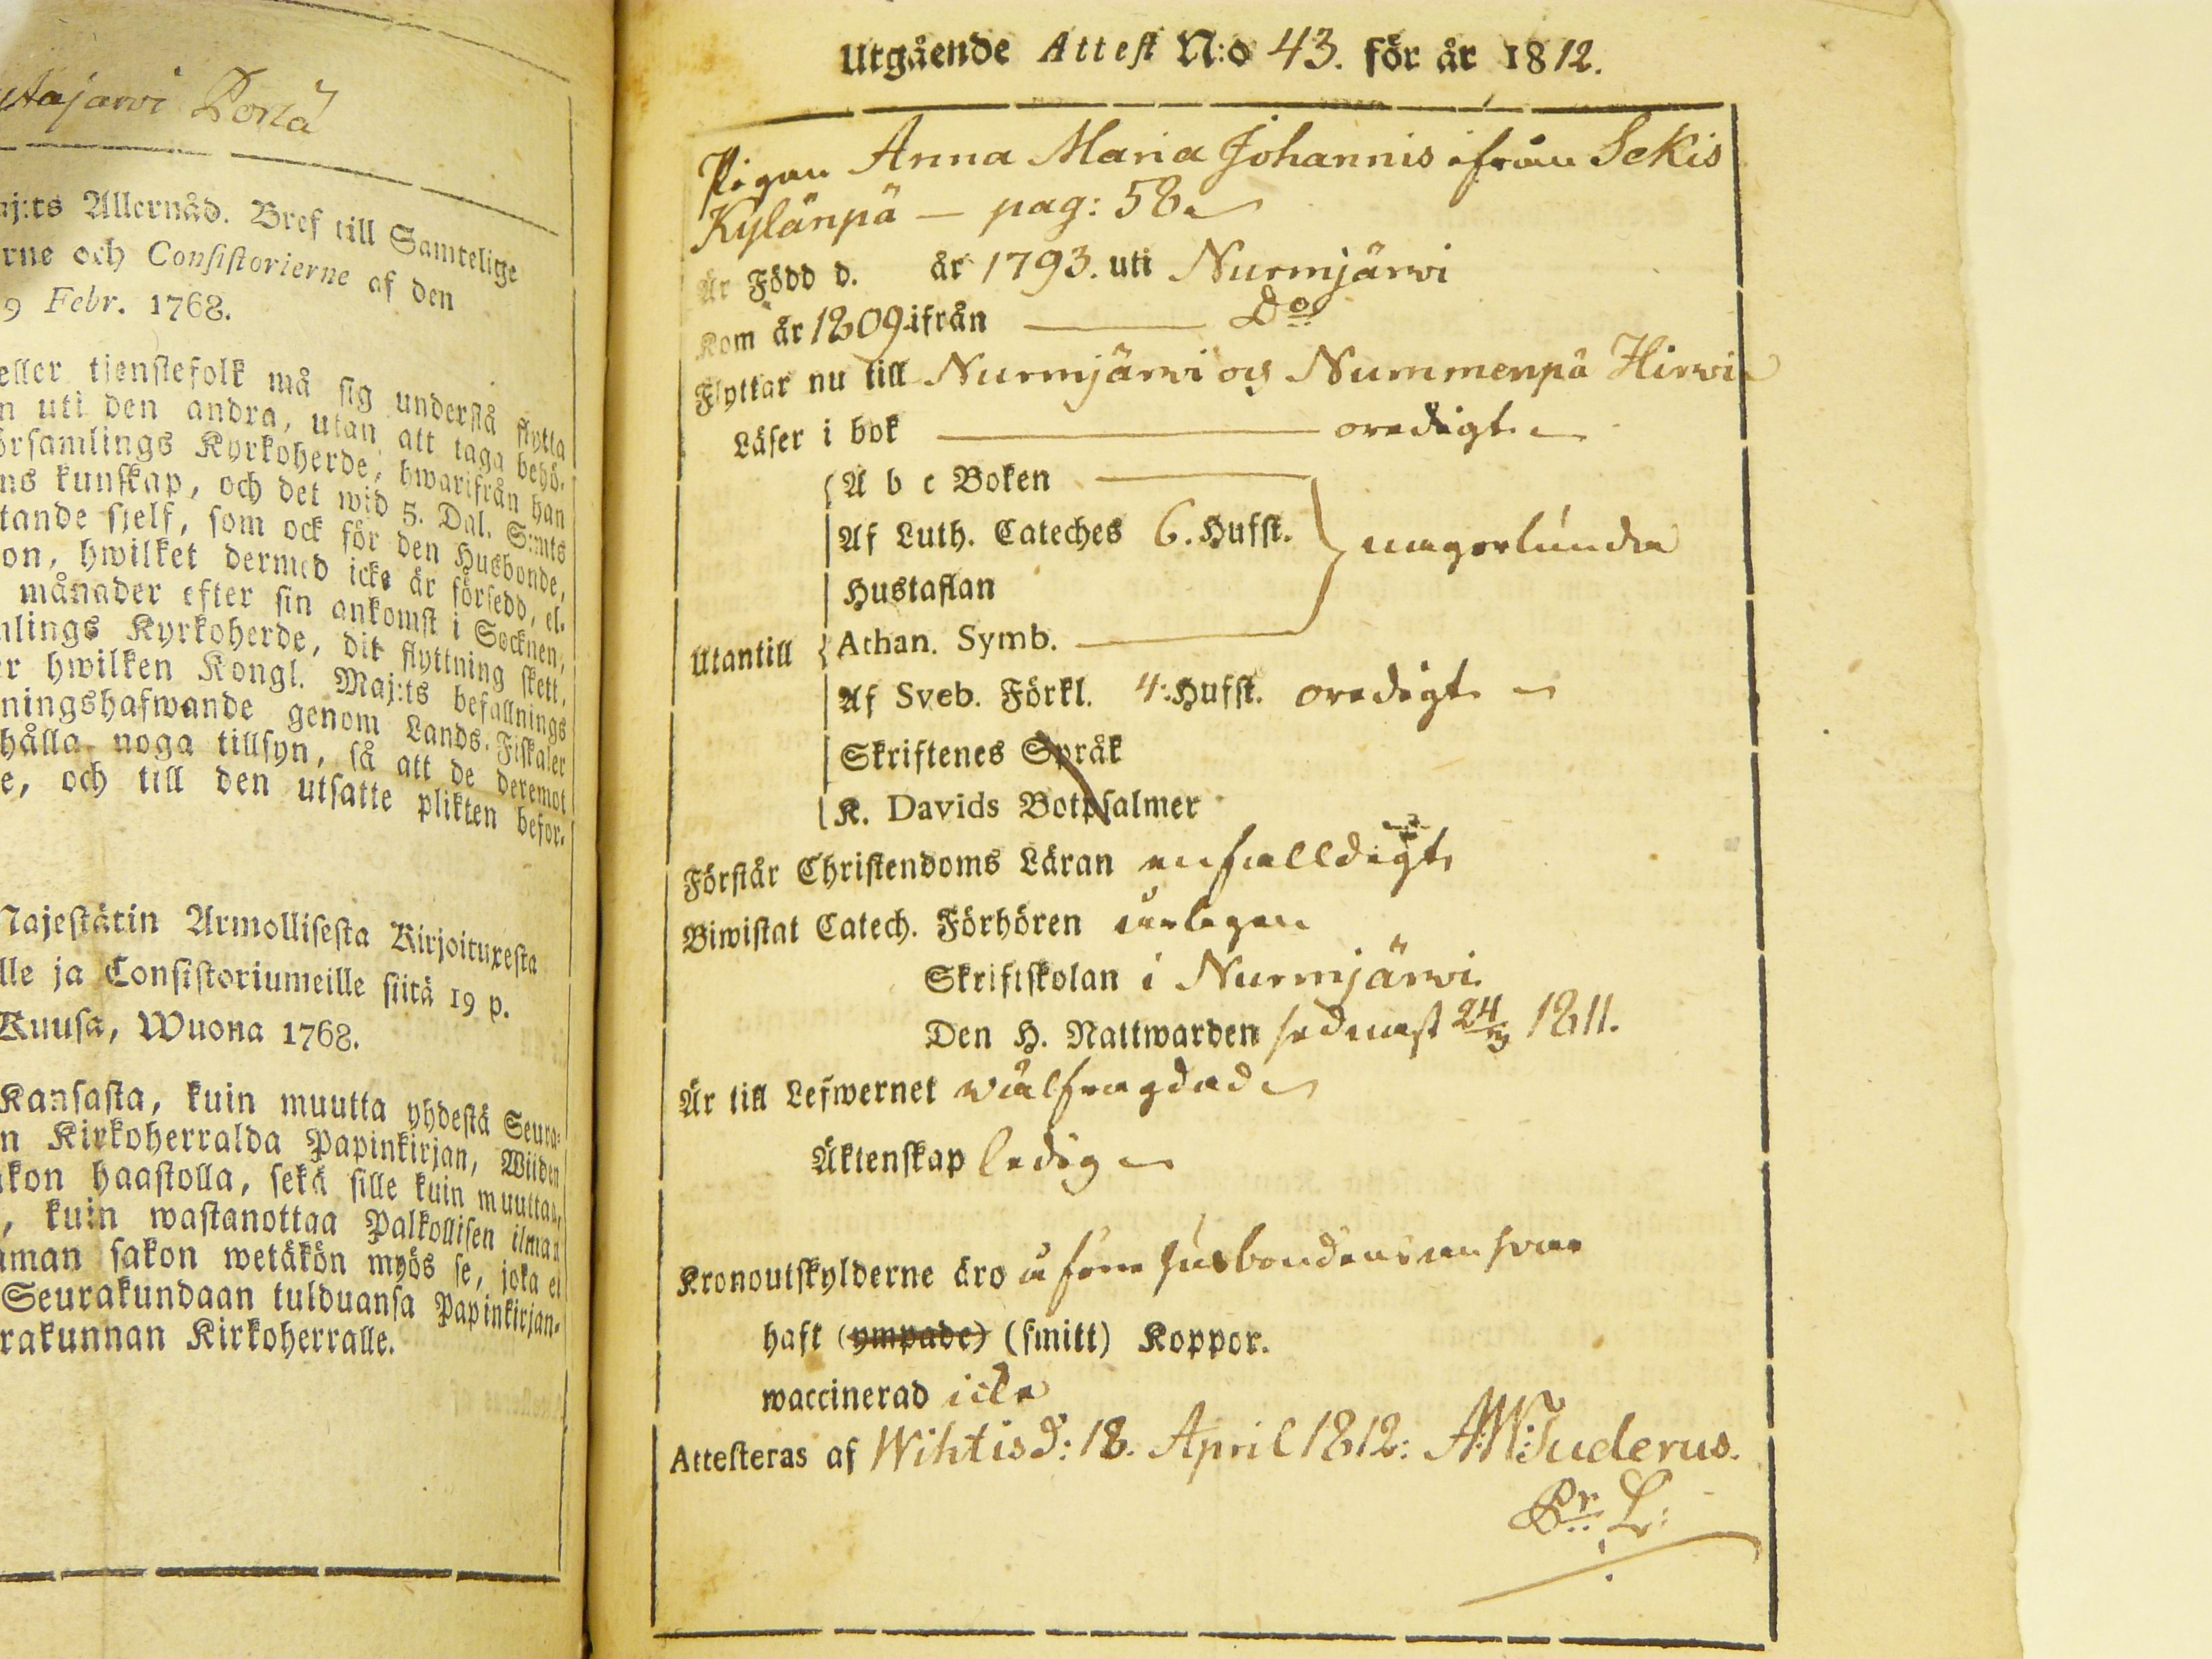 Porrå
aj:ts Allernåd. Bref till Samtelige
rne och Consistorierne af den
9 Febr. 1768.
eller tienstefolk må sig understå flytta
n uti den andra, utan att taga behö-
örsamlings Kyrkoherde, hwarifrån han
ns kunskap, och det wid 5. Dal. S:mts
tande sjelf, som ock för den Husbonde,
on, hwilket dermed icke är försedd, el-
månader efter sin ankomst i Socknen,
mlings Kyrkoherde, dit flyttning skett,
r hwilken Kongl. Maj:ts befallnings
ningshafwande genom Lands-Fiskaler
hålla noga tillsyn, så att de deremot
e, och till den utsatte plikten befor-
Majestätin Armollisesta Kirjoituxesta
lle ja Consistoriumeille siitä 19 p.
Kuusa, Wuona 1768.
Kansasta, kuin muutta yhdestä Seura-
n Kirkoherralda Papinkirjan, Wiiden
kon haastolla, sekä sille kuin muuttaa,
, kuin wastanottaa Palkollisen ilman
aman sakon wetäkön myös se, joka ei
Seurakundaan tulduansa Papinkirjan-
rakunnan Kirkoherralle.
Utgående Attest N:o 43. för år 1812.
Pigan Anna Maria Johannis ifrån Sekis
Kylänpä — pag: 58
Är Född d. år 1793. uti Nurmjärwi
Kom år 1809 ifrån — Do
Flyttar nu till Nurmjärwi och Nummenpä Hirwi
Läser i bok — oredigt
A b c Boken
Af Luth. Cateches 6. Hufst. någorlunda
Hustaflan
Utantill Athan. Symb.
Af Sveb. Förkl. 4: Hufst. oredigt
Skriftenes Språk
K. Davids Botpsalmer
Förstår Christendoms Läran enfalldigt
Biwistat Catech. Förhören årligen
Skriftskolan i Nurmjärwi
Den H. Nattwarden sednast 24 1811.
Är till Lefwernet wälfrägdad
Äktenskap ledig
Kronoutskylderne äro å förre husbondens answar
haft (ympade) (smitt) Koppor.
waccinerad icke
Attesteras af Wihtis d: 18. April 1812: A:W:Tuderus.
Pr. L: